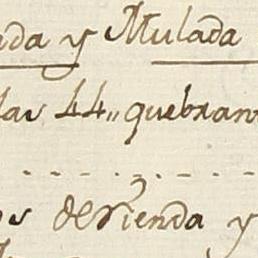 y Mulada
las 44,, quebran
de rienda y